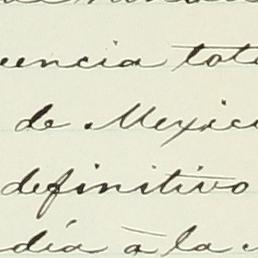 uencia tot
de Mexic
definitivo
día à la